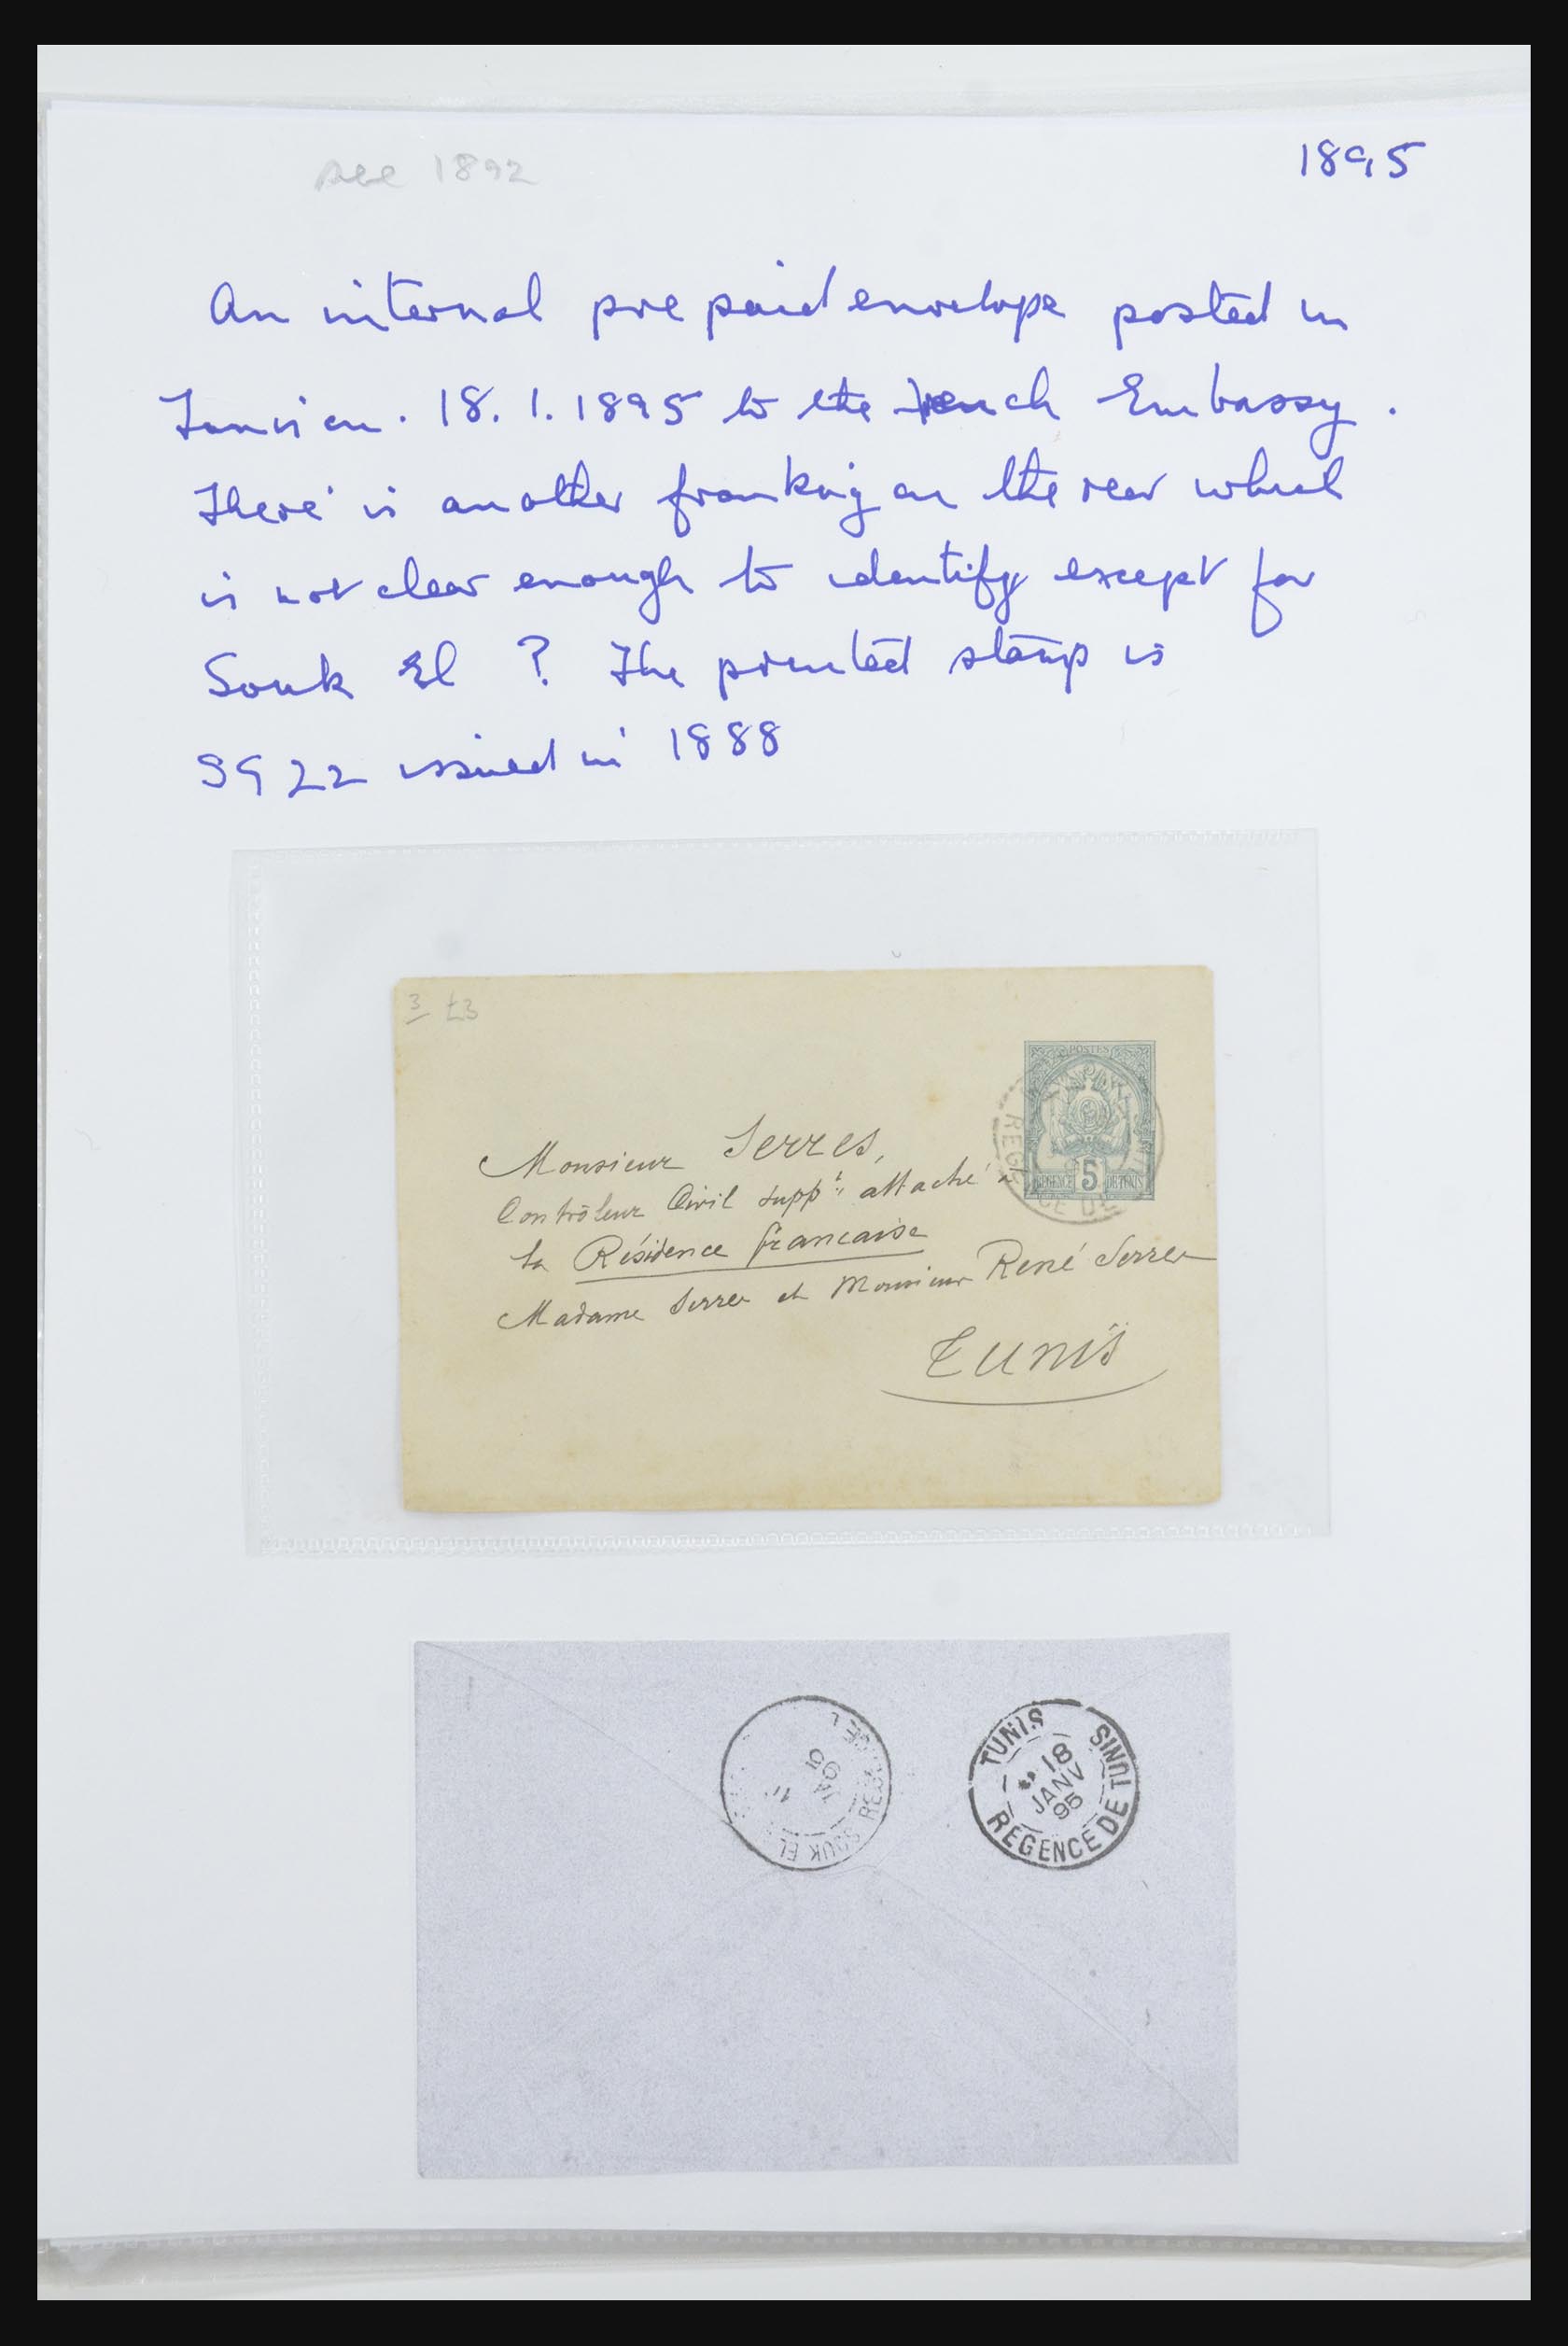 see 1892
1895
An internal pre paid envelope posted in
Tunis on . 18. 1. 1895 to the French Embassy .
There is another franking on the rear which
is not clear enough to identify except for
Souk El ? The printed stamp is
SG 22 issued in 1888
3 £3
POSTES
5
REGENCE DE TUNIS
REGENCE DE
Monsieur Serres,
Contrôleur Civil suppt attaché à
la Résidence française
Madame Serres et Monsieur René Serres
Tunis
SOUK EL
REGENCE
95
TUNIS TUNIS
18
JANV
95
REGENCE DE